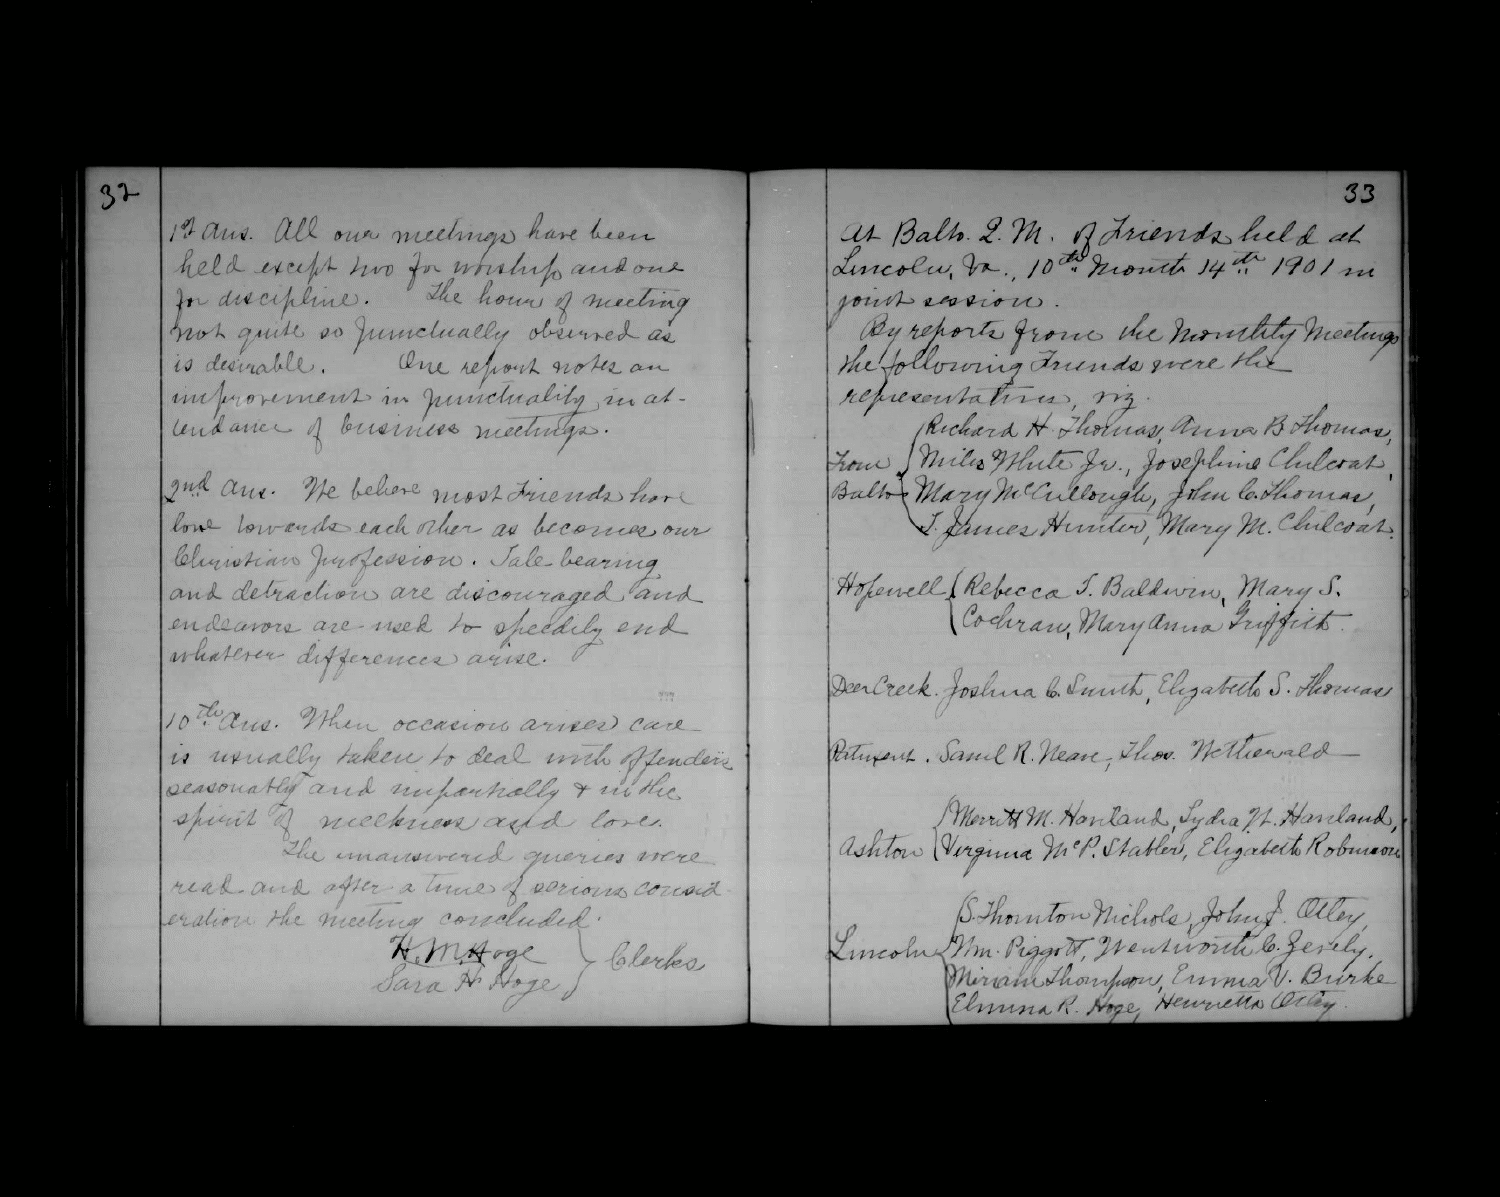 32
1st Ans. All our meetings have been
held except two for worship and one
for discipline. The hour of meeting
not quite so punctually observed as
is desirable. One report notes an
improvement in punctuality in at-
tendance of business meetings.
2nd Ans. We believe most Friends have
love towards each other as becomes our
Christian profession. Tale bearing
and detraction are discouraged and
endeavors are used to speedily end
whatever differences arise.
10th Ans. When occasion arises care
is usually taken to deal with offenders
seasonably and impartially & in the
spirit of meekness and love.
The unanswered queries were
read and after a time of serious consid-
eration the meeting concluded.
H. M. Hoge
Sara H Hoge } Clerks
33
At Balto. Q. M. of Friends held at
Lincoln, Va., 10th Month 14th 1901 in
joint session.
By reports from the Monthly Meetings
the following Friends were the
representatives, viz.
Richard H. Thomas, Anna B Thomas,
From { Miles White Jr., Josephine Chilcoat,
Balto { Mary McCullough, John C. Thomas,
T. James Hunter, Mary M. Chilcoat.
Hopewell { Rebecca T. Baldwin, Mary S.
Cochran, Mary Anna Griffith.
Deer Creek. Joshua C. Smith, Elizabeth S. Thomas
Saml R. Neave, Thos. Wetherald
Merritt M. Haviland, Lydia H. Haviland,
Ashton { Virginia McP. Stabler, Elizabeth Robinson
S. Thornton Nichols, John J. Otley,
Lincoln { Wm. Piggott, Wentworth C. Zerely,
Miriam Thompson, Emma V. Burke
Elmina R. Hoge, Henrietta Otley.